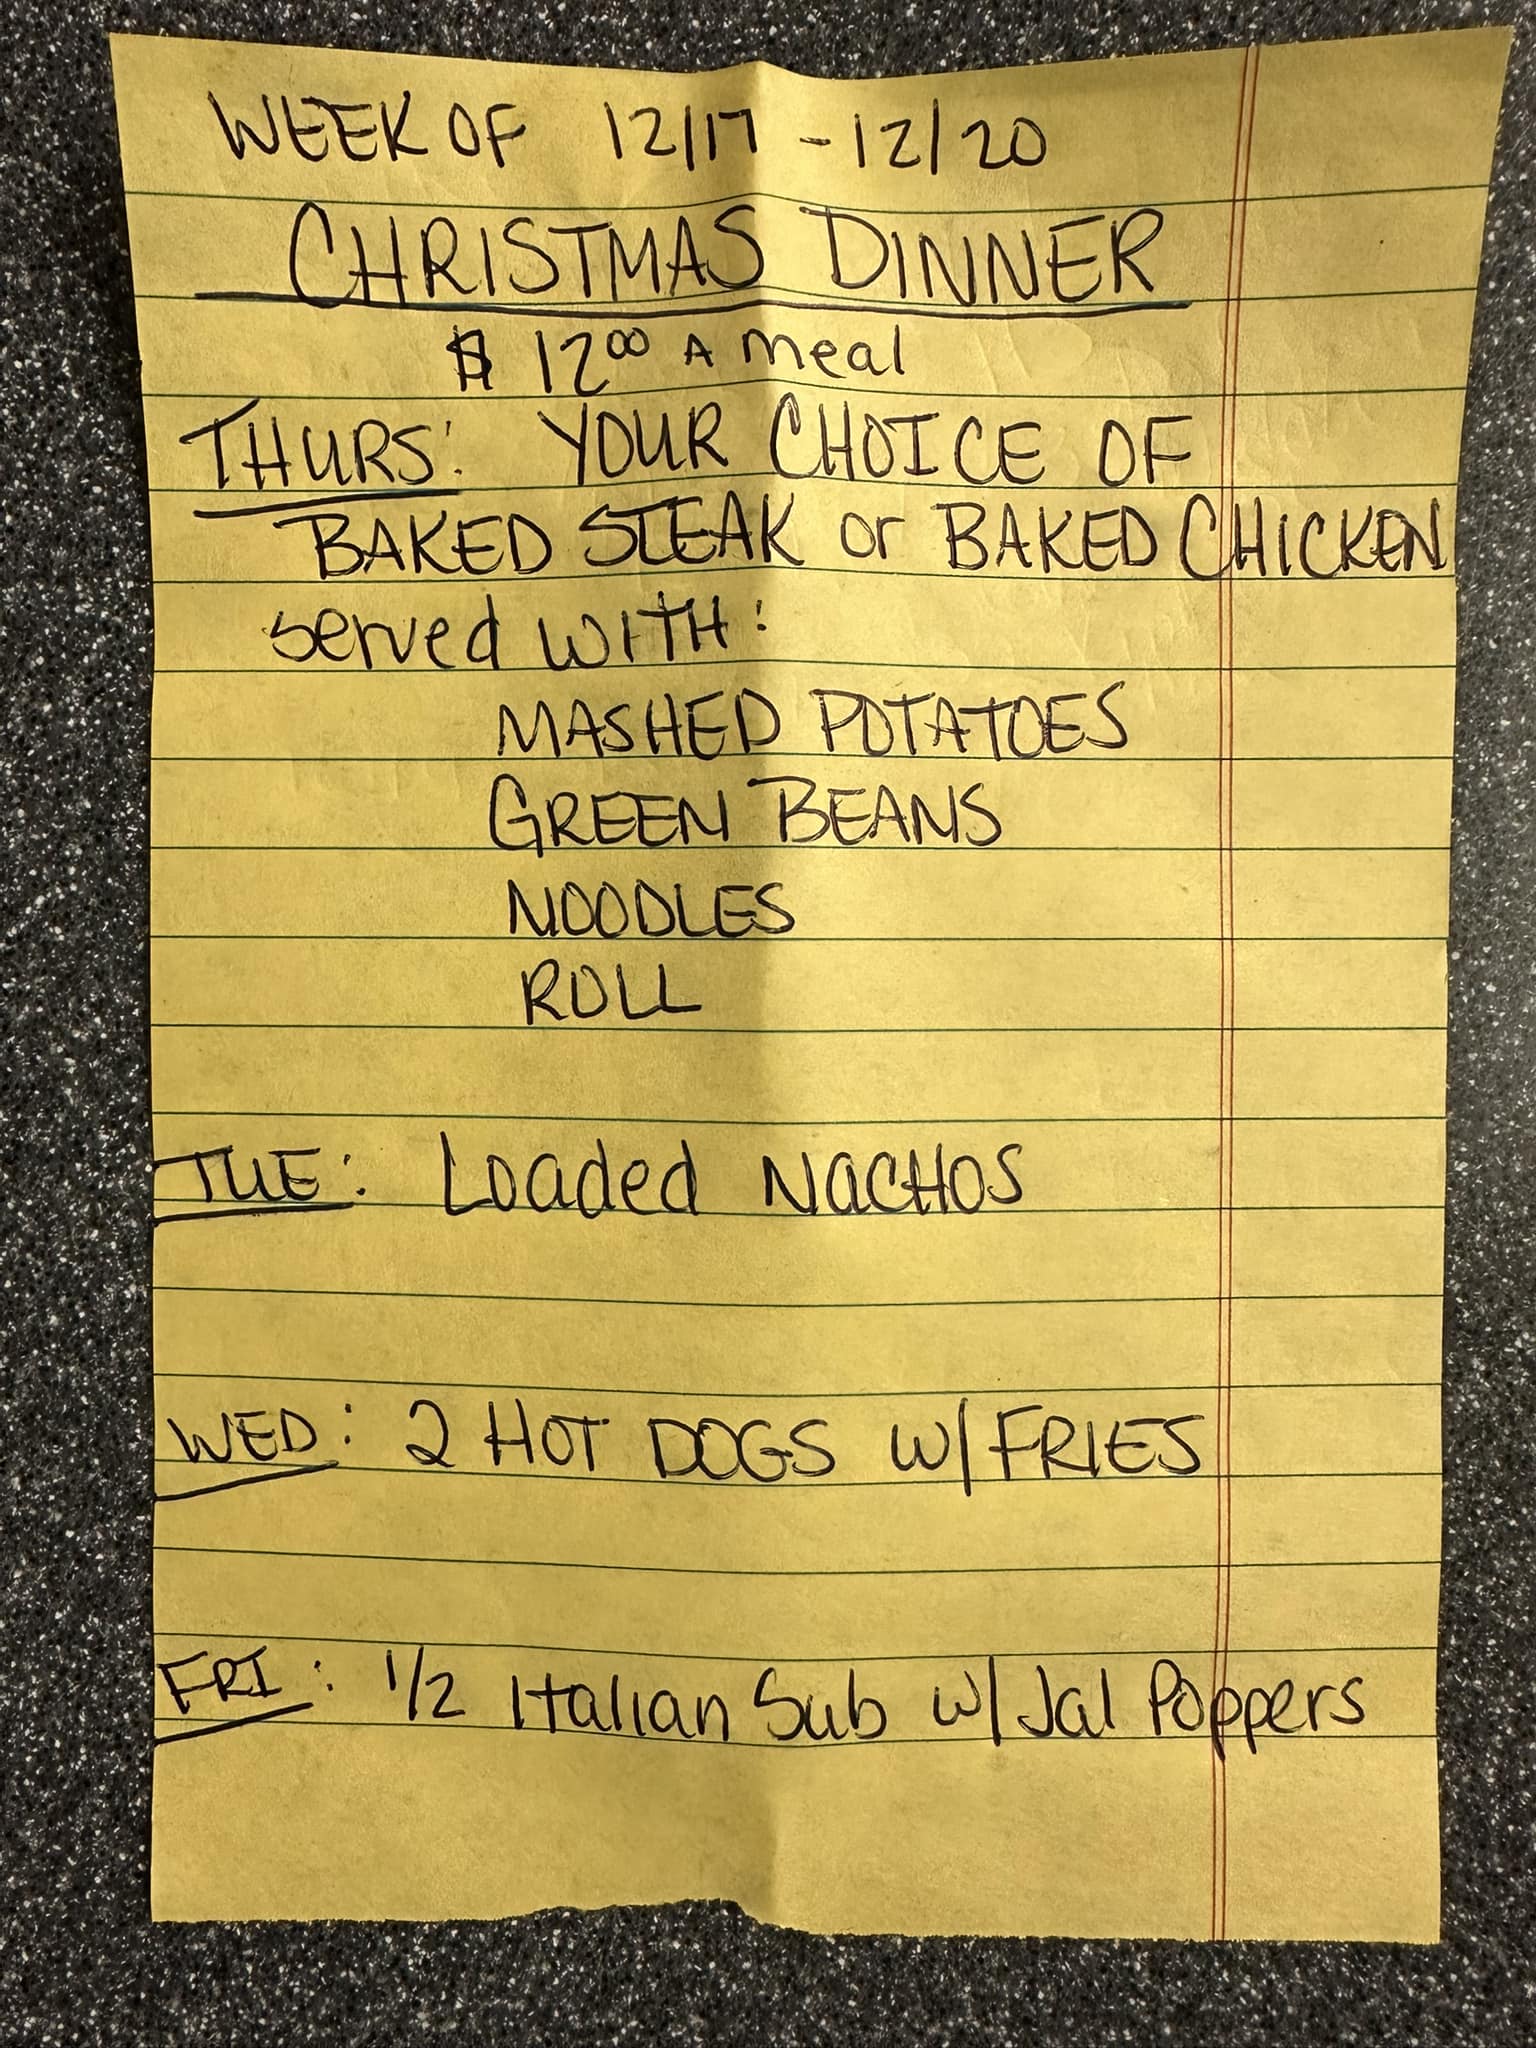 WEEK OF 12/17 - 12/20
CHRISTMAS DINNER
$ 12.00 A meal
THURS: YOUR CHOICE OF
BAKED STEAK or BAKED CHICKEN
served WITH:
MASHED POTATOES
GREEN BEANS
NOODLES
ROLL
TUE: Loaded NACHOS
WED: 2 HOT DOGS W/ FRIES
FRI: 1/2 Italian Sub w/ Jal Poppers